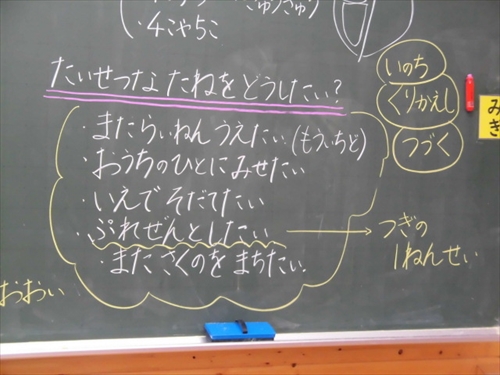 ・4こやちこ
たいせつな たねを どうしたい?
・また らいねん うえたい (もういちど)
・おうちのひとに みせたい
・いえで そだてたい
・ぷれぜんとしたい → つぎの
1ねんせい
・また さくのを まちたい
いのち
くりかえし
つづく
おおい